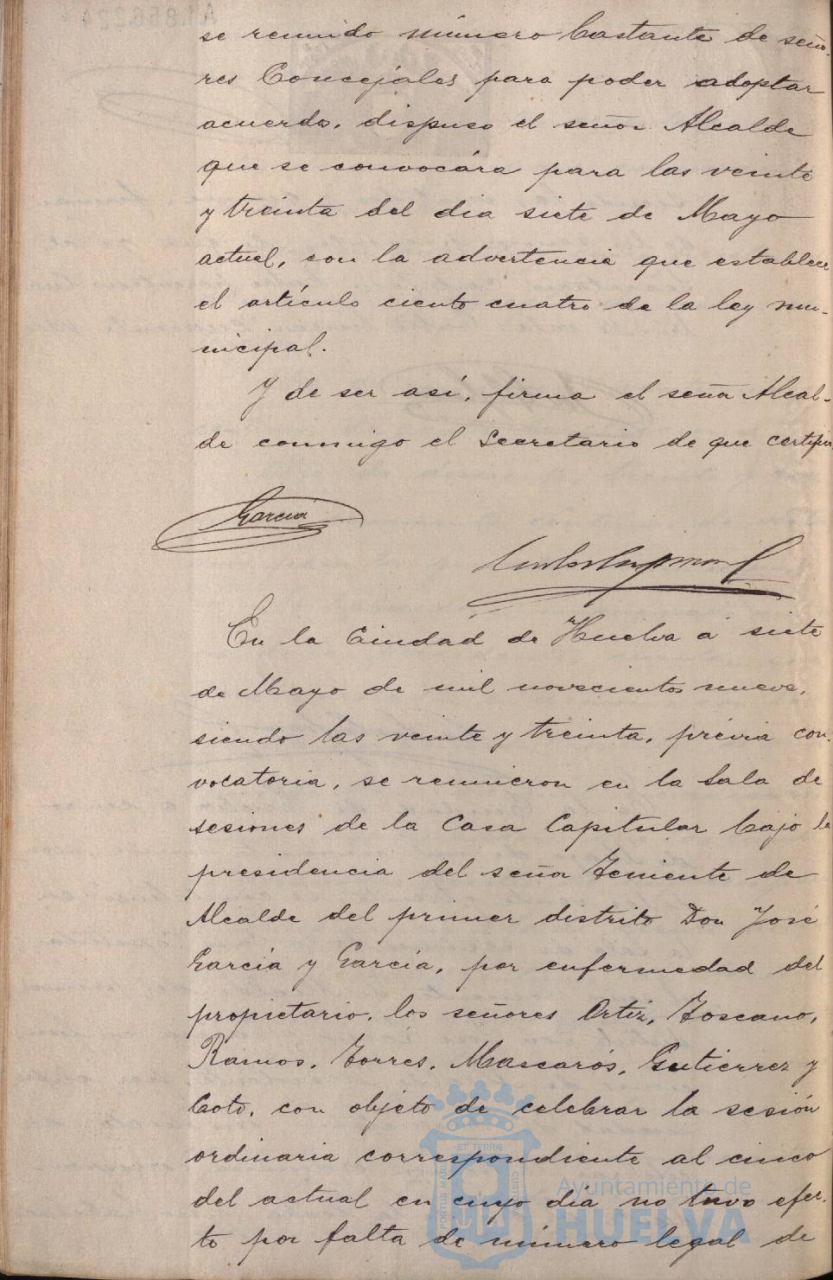 se reunido número bastante de seño-
res Concejales para poder adoptar
acuerdo, dispuso el señor Alcalde
que se convocára para las veinte
y treinta del dia siete de Mayo
actual, con la advertencia que establece
el artículo ciento cuatro de la ley mu-
nicipal.
Y de ser así, firma el señor Alcal-
de conmigo el Secretario de que certifico
García
En la Ciudád de Huelva á siete
de Mayo de mil novecientos nueve,
siendo las veinte y treinta, prévia con-
vocatoria, se reunieron en la Sala de
sesiones de la Casa Capitular bajo la
presidencia del señor Teniente de
Alcalde del primer distrito Don José
García y García, por enfermedad del
propietario, los señores Ortiz, Toscano,
Ramos, Torres, Mascarós, Gutierrez y
Coto, con objeto de celebrar la sesión
ordinaria correspondiente al cinco
del actual en cuyo dia no tuvo efec-
to por falta de número legal de
Ayuntamiento de
HUELVA